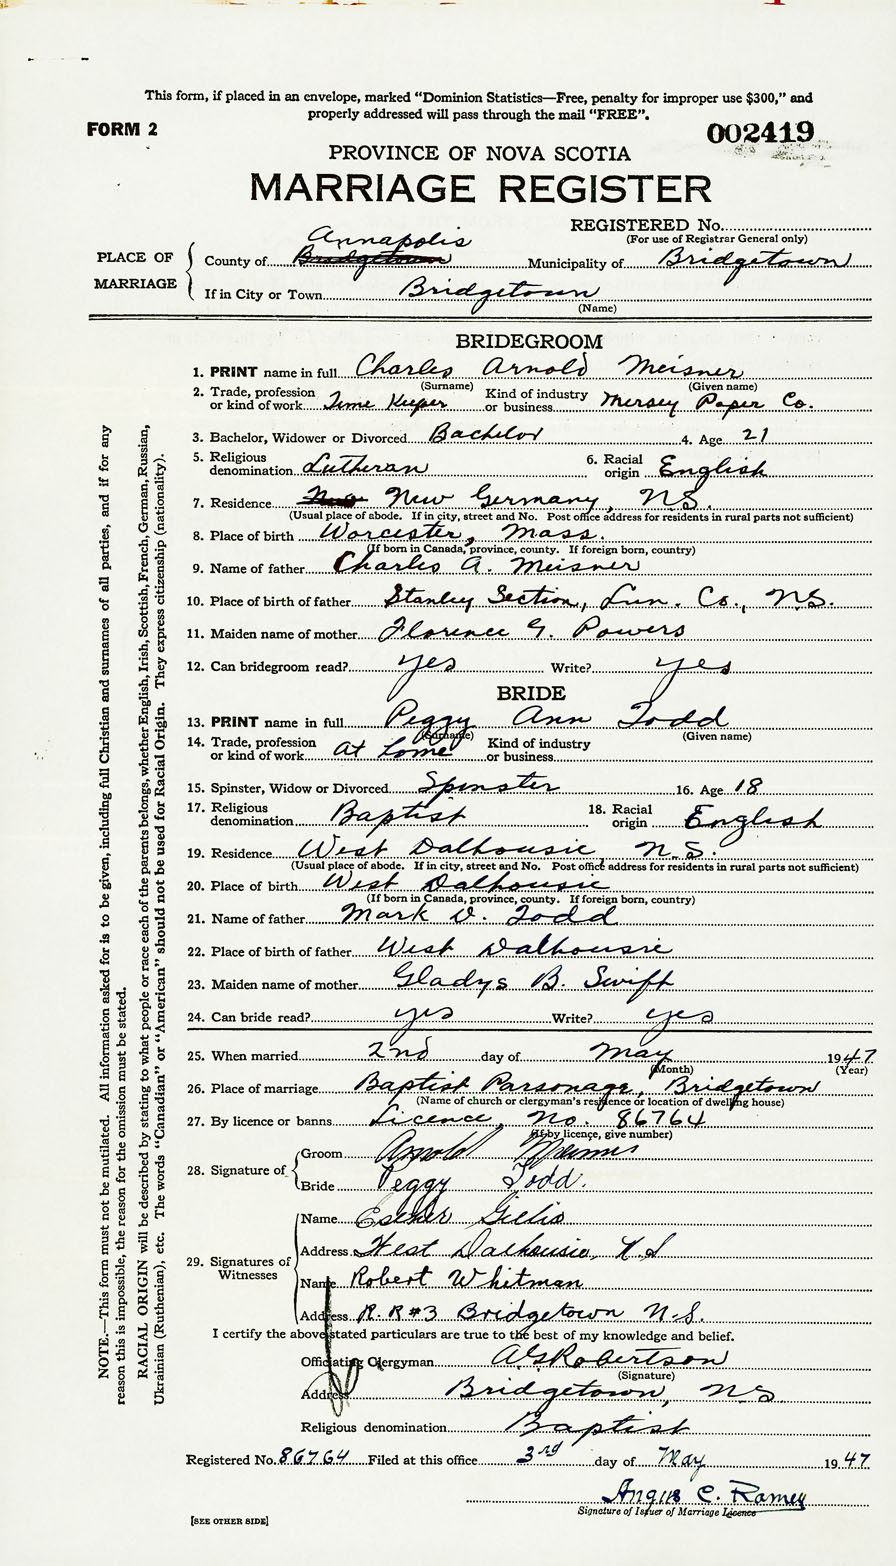 This form, if placed in an envelope, marked “Dominion Statistics—Free, penalty for improper use $300,” and
properly addressed will pass through the mail “FREE”.
FORM 2
002419
PROVINCE OF NOVA SCOTIA
MARRIAGE REGISTER
REGISTERED No.
(For use of Registrar General only)
PLACE OF MARRIAGE
Annapolis
County of Bridgetown Municipality of Bridgetown
If in City or Town Bridgetown
(Name)
BRIDEGROOM
1. PRINT name in full Charles Arnold Meisner
(Surname) (Given name)
2. Trade, profession or kind of work Time Keeper Kind of industry or business Mersey Paper Co.
3. Bachelor, Widower or Divorced Bachelor 4. Age 21
5. Religious denomination Lutheran 6. Racial origin English
7. Residence New Germany, N.S.
(Usual place of abode. If in city, street and No. Post office address for residents in rural parts not sufficient)
8. Place of birth Worcester, Mass.
(If born in Canada, province, county. If foreign born, country)
9. Name of father Charles A. Meisner
10. Place of birth of father Stanley Section, Lun. Co., N.S.
11. Maiden name of mother Florence G. Powers
12. Can bridegroom read? yes Write? yes
BRIDE
13. PRINT name in full Peggy Ann Todd
(Surname) (Given name)
14. Trade, profession or kind of work At home Kind of industry or business
15. Spinster, Widow or Divorced Spinster 16. Age 18
17. Religious denomination Baptist 18. Racial origin English
19. Residence West Dalhousie, N.S.
(Usual place of abode. If in city, street and No. Post office address for residents in rural parts not sufficient)
20. Place of birth West Dalhousie
(If born in Canada, province, county. If foreign born, country)
21. Name of father Mark V. Todd
22. Place of birth of father West Dalhousie
23. Maiden name of mother Gladys B. Swift
24. Can bride read? yes Write? yes
25. When married 2nd day of May 1947
(Month) (Year)
26. Place of marriage Baptist Parsonage, Bridgetown
(Name of church or clergyman's residence or location of dwelling house)
27. By licence or banns Licence, No. 86764
(If by licence, give number)
28. Signature of
Groom Arnold Meisner
Bride Peggy Todd.
29. Signatures of Witnesses
Name Esther Gillis
Address West Dalhousie, N.S
Name Robert Whitman
Address R.R #3 Bridgetown N.S.
I certify the above stated particulars are true to the best of my knowledge and belief.
Officiating Clergyman A.G. Robertson
(Signature)
Address Bridgetown, N.S.
Religious denomination Baptist
Registered No. 86764 Filed at this office 3rd day of May 1947
Angus C. Ramey
Signature of Issuer of Marriage Licence
[SEE OTHER SIDE]
NOTE.—This form must not be mutilated. All information asked for is to be given, including full Christian and surnames of all parties, and if for any
reason this is impossible, the reason for the omission must be stated.
RACIAL ORIGIN will be described by stating to what people or race each of the parents belongs, whether English, Irish, Scottish, French, German, Russian,
Ukrainian (Ruthenian), etc. The words “Canadian” or “American” should not be used for Racial Origin. They express citizenship (nationality).